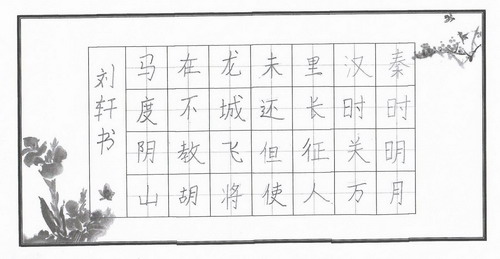 秦时明月
汉时关万
里长征人
未还但使
龙城飞将
在不教胡
马度阴山
刘轩书